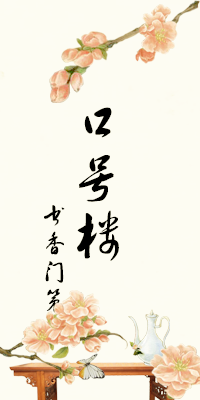 口号楼
书香门第